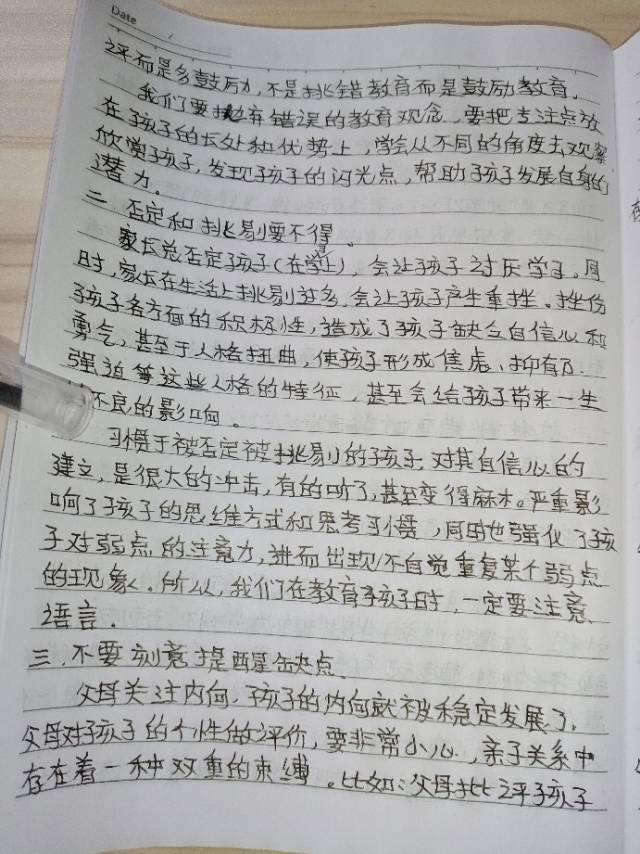 Date
评而是多鼓励,不是挑错教育而是鼓励教育。
我们要抛弃错误的教育观念,要把专注点放
在孩子的长处和优势上,学会从不同的角度去观察
欣赏孩子,发现孩子的闪光点,帮助孩子发展自身的
潜力。
二、否定和挑剔要不得。
家长总否定孩子(在学习上),会让孩子讨厌学习。同
时,家长在生活上挑剔过多,会让孩子产生重挫。挫伤
孩子各方面的积极性,造成了孩子缺乏自信心和
勇气,甚至于人格扭曲,使孩子形成焦虑、抑郁、
强迫等这些人格的特征,甚至会给孩子带来一生
不良的影响。
习惯于被否定被挑剔的孩子,对其自信心的
建立,是很大的冲击,有的听了,甚至变得麻木。严重影
响了孩子的思维方式和思考习惯,同时也强化了孩
子对弱点的注意力,进而出现不自觉重复某个弱点
的现象。所以,我们在教育孩子时,一定要注意
语言。
三、不要刻意提醒缺点。
父母关注内向,孩子的内向就被稳定发展了,
父母对孩子的个性做评价,要非常小心,亲子关系中
存在着一种双重的束缚。比如:父母批评孩子